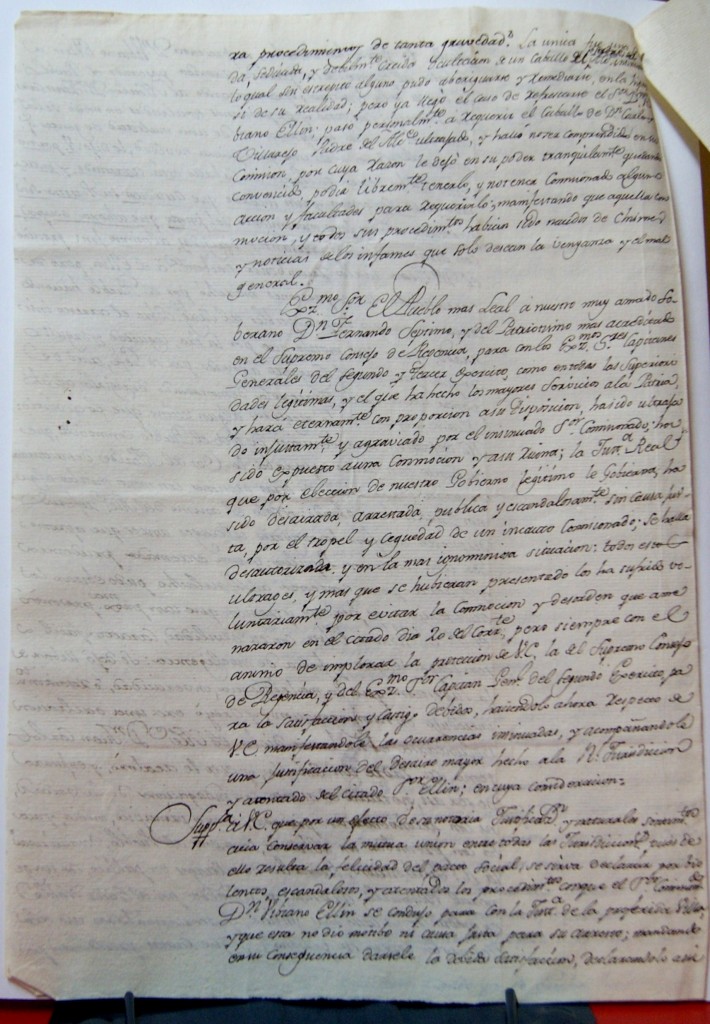 ra procedimientos de tanta gravedad. La unica
da, saduada, y debilmte. creida de un Caballo del
lo qual sin estrepito alguno, pudo aberiguarse y remediarse, en la
si de su realidad; pero ya llegó el caso de el Sor.
brano Ellin: pasó personalmte. a requerir el Caballo de Dn.
Villarejo Padre del ultrajado, y halló no ser comprendido en su
Comision, por cuya razon le dejó en su poder tranquilamte. quedando
convencido, podia libremte. tenerlo, y no tener Comisionado alguno
accion y facultades para requerirlo; manifestando que aquella
mocion, y todos sus procedimtos. habian sido nacidos de Chismes
y noticias de los infames que solo desean la venganza y el mal
general.
Exmo. Sor. El Pueblo mas Leal á nuestro muy amado So-
berano Dn. Fernando Septimo, y del Patriotismo mas acreditado
en el Supremo Consejo de Regencia, para con los Exmos. Sres. Capitanes
Generales del segundo y tercer Exercito, como en todas las Superiori
dades legitimas, y el que ha hecho los mayores servicios a la Patria,
y hará eternamte. con proporcion a su disposicion, ha sido ultraja
do injustamte. y agraviado por el insinuado Sor. Comisionado; ha
sido expuesto a una Conmocion y a su ruina; la Justa. Real
que por eleccion de nuestro Gobierno legitimo le Gobierna, ha
sido desairada, arrestada, publica y escandalosamte. sin Causa jus
ta, por el tropel y ceguedad de un incauto Comisionado; se halla
desautorizada y en la mas ignominiosa situacion: todos estos
ultrages, y mas que se hubieran presentado los ha sufrido vo-
luntariamte. por evitar la Conmocion y desorden que ame
nazaron en el citado dia 20 del Corrte., pero siempre con el
animo de implorar la proteccion de V.E. la del Supremo Consejo
de Regencia, y del Exmo. Sor. Capitan Genl. del segundo Exercito, pa
ra la satisfaccion y castigo debido, haciendolo ahora respecto de
V.E. manifestandole las ocurrencias insinuadas, y acompañandole
una justificacion del desaire mayor hecho a la Rl. Jurisdicion
y atentado del citado Sor. Ellin; en cuya consideracion=
Suppca. á V.E. que por un efecto de su notoria Justificacn. y naturales sentimtos.
acia conservar la mutua union entre todas las Jurisdicciones, pues de
ello resulta la felicidad del pacto social; se sirva declarar por
lentos, escandalosos, y atentados los procedimtos. con que el Sor. Comisiondo.
Dn. Ellin se condujo para con la Justa. de la proferida Villa,
y que esta no dio motibo ni causa justa para su arresto; mandando
en su Consequencia darsele la debida satisfaccion, declarandolo asi